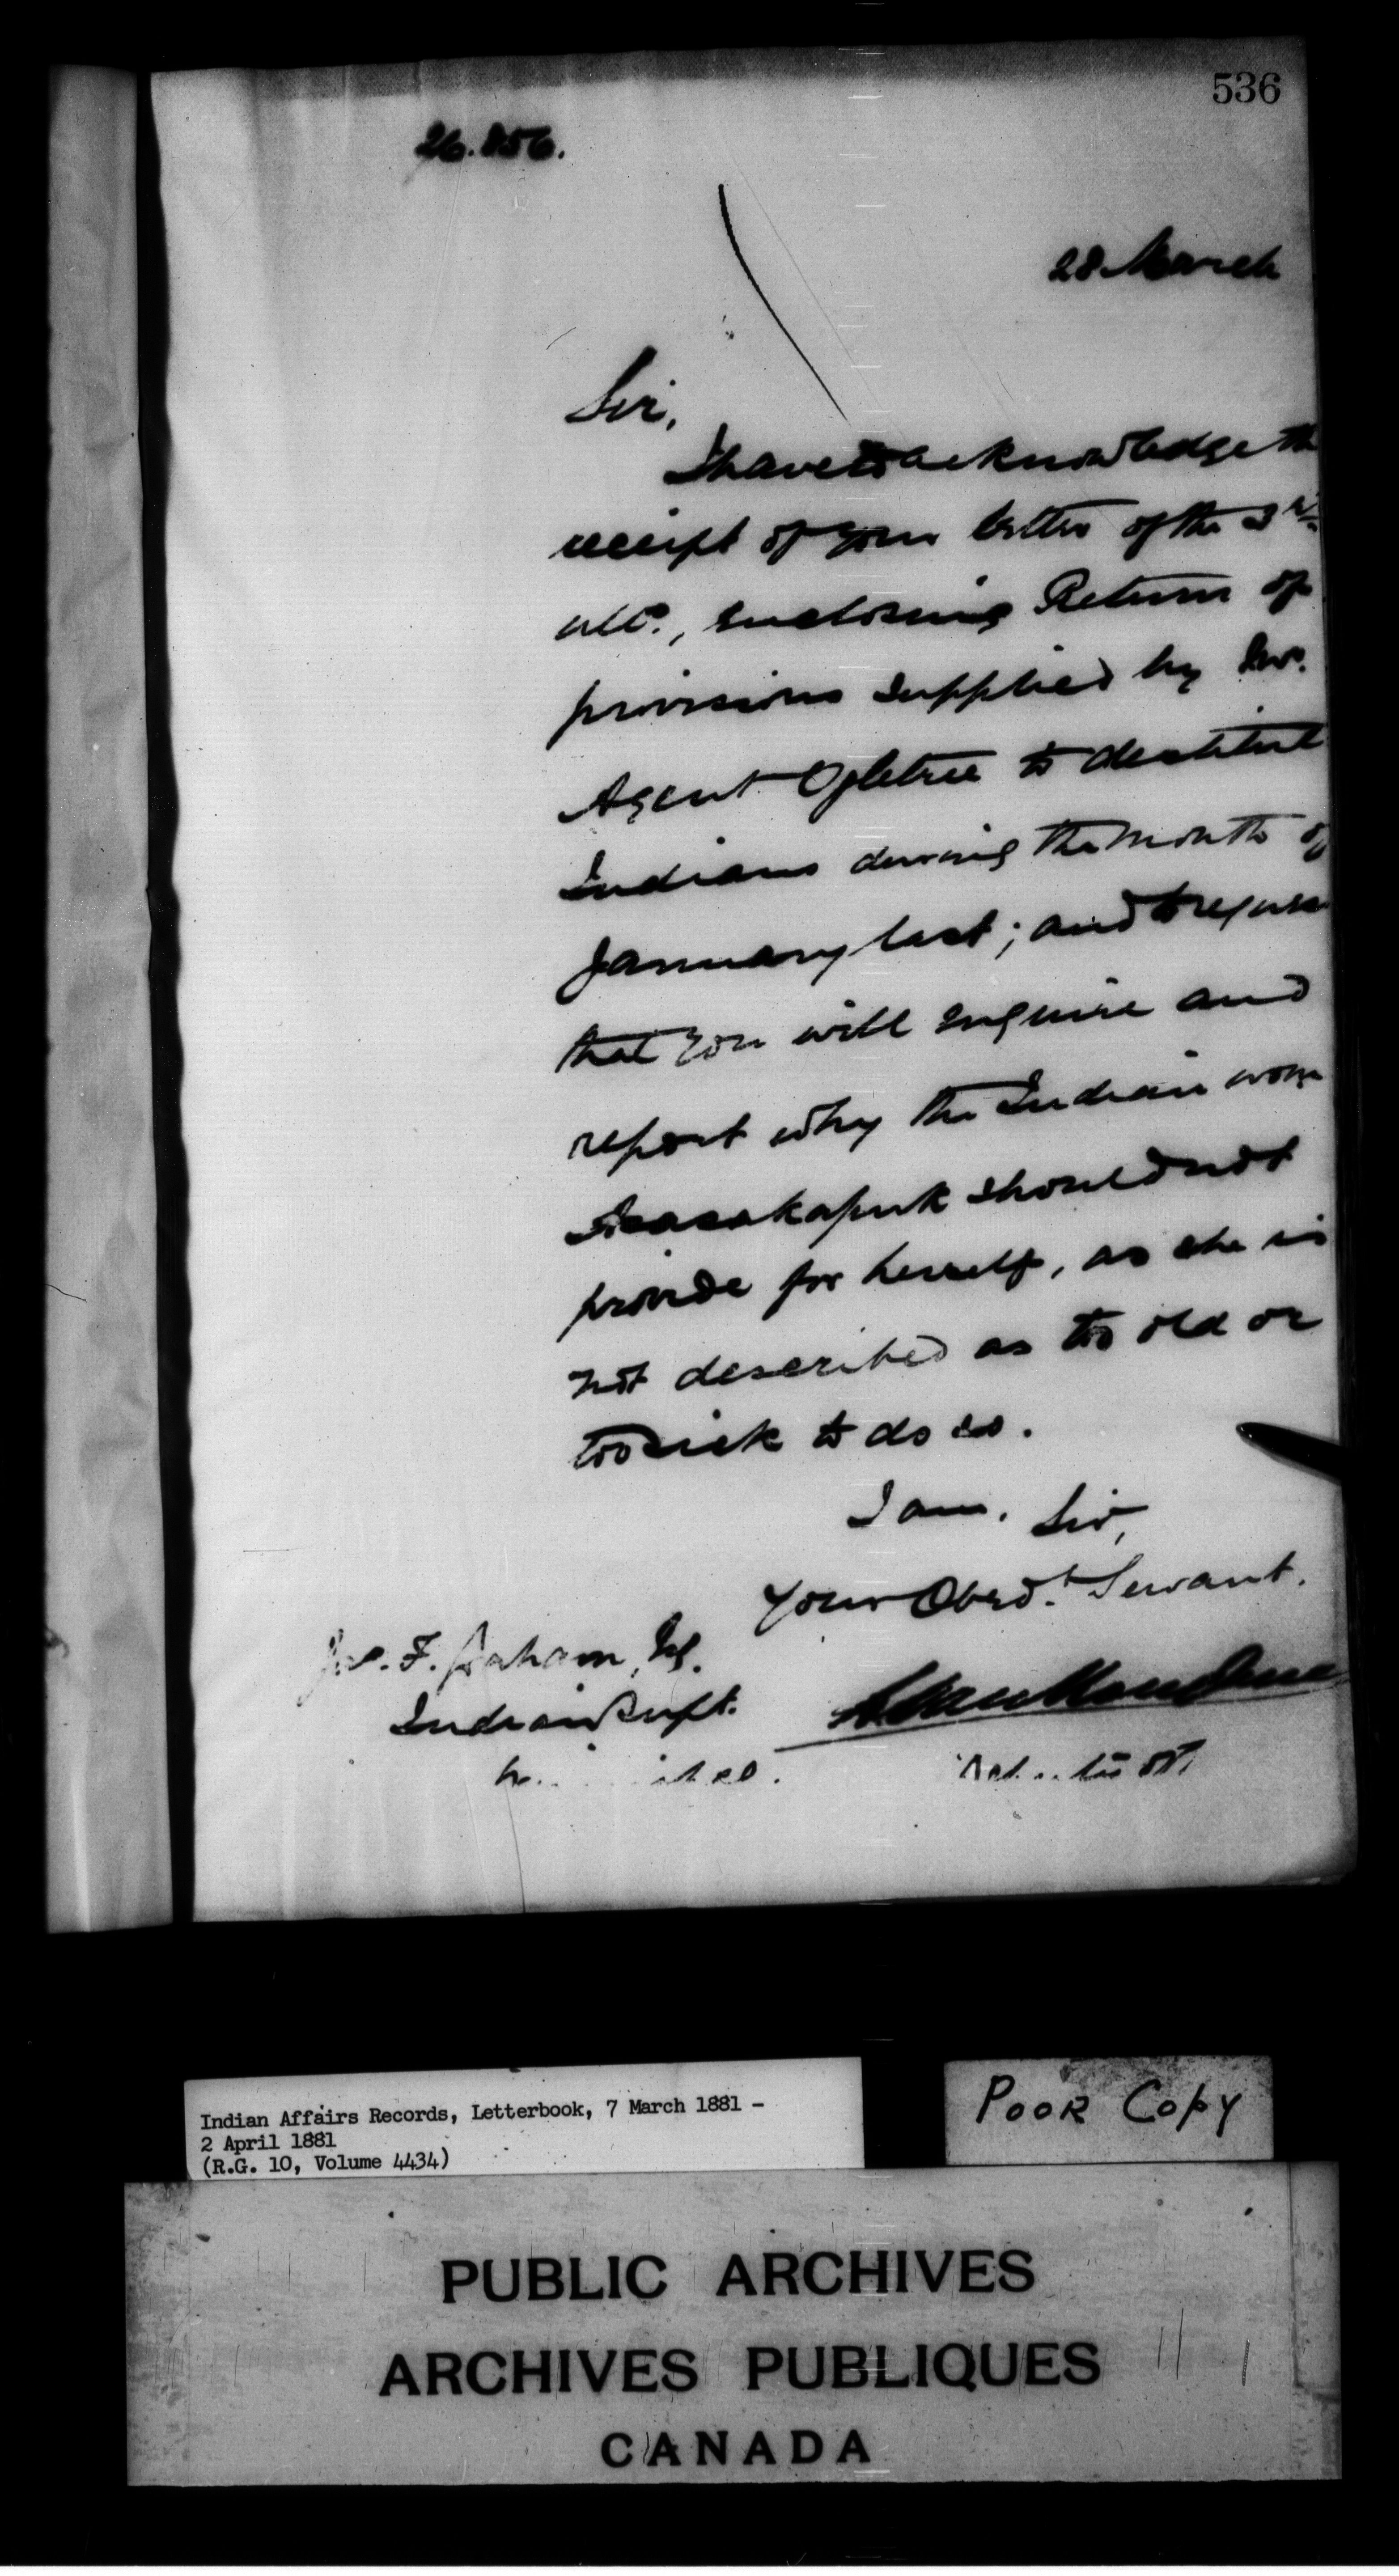 536
26.856.
28 March
Sir,
I have to acknowledge the
receipt of your letter of the 3rd
ulto., enclosing Return of
provisions supplied by Ind.
Agent Ogletree to destitute
Indians during the month of
January last; and to request
that you will enquire and
report why the Indian woman
should not
provide for herself, as she is
not described as too old or
too sick to do so.
I am, Sir,
Your Obedt. Servant.
Jas. F. Graham, Esq.
Indian Supt.
Indian Affairs Records, Letterbook, 7 March 1881 -
2 April 1881
(R.G. 10, Volume 4434)
POOR COPY
PUBLIC ARCHIVES
ARCHIVES PUBLIQUES
CANADA